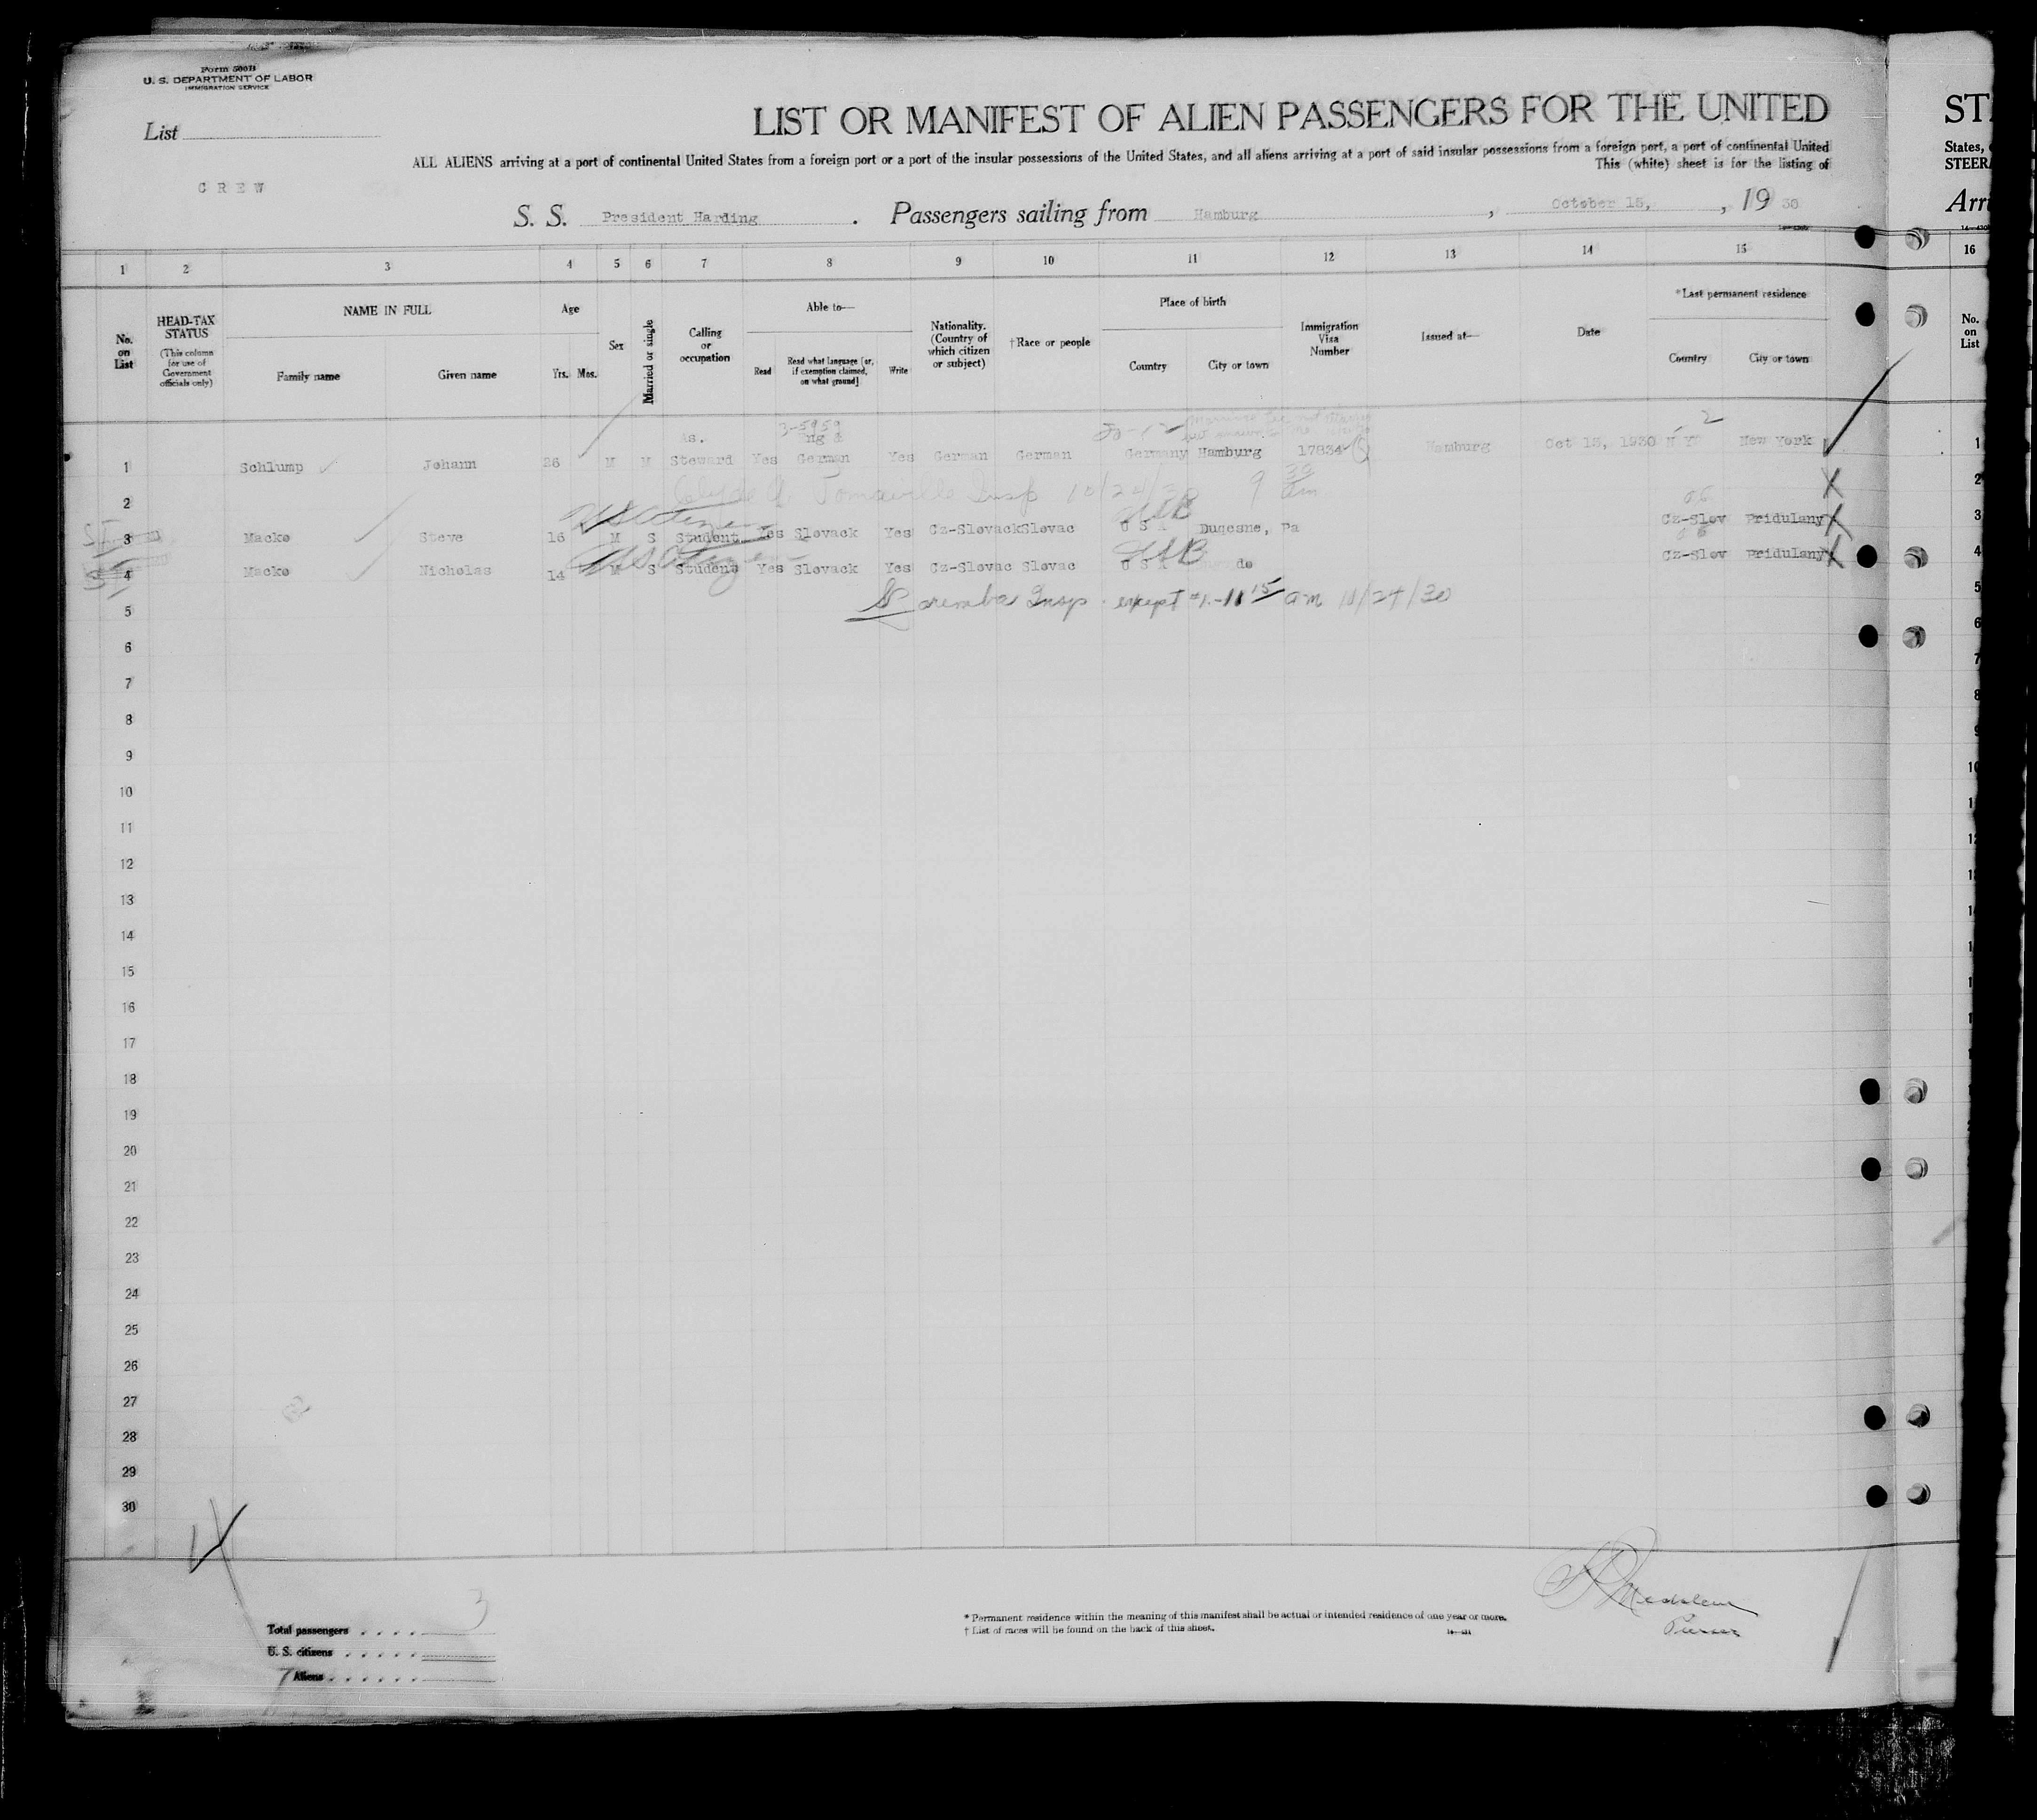 Form 500B
U. S. DEPARTMENT OF LABOR
IMMIGRATION SERVICE
List
LIST OR MANIFEST OF ALIEN PASSENGERS FOR THE UNITED
ALL ALIENS arriving at a port of continental United States from a foreign port or a port of the insular possessions of the United States, and all aliens arriving at a port of said insular possessions from a foreign port, a port of continental United
This (white) sheet is for the listing of
CREW
S. S. President Harding . Passengers sailing from Hamburg , October 15, , 19 30
1 2 3 4 5 6 7 8 9 10 11 12 13 14 15
No. on List
HEAD-TAX STATUS
(This column for use of Government officials only)
NAME IN FULL
Family name Given name
Age
Yrs. Mos.
Sex
Married or single
Calling or occupation
Able to—
Read Read what language [or, if exemption claimed, on what ground] Write
Nationality. (Country of which citizen or subject)
†Race or people
Place of birth
Country City or town
Immigration Visa Number
Issued at—
Date
*Last permanent residence
Country City or town
3-5959
As. Eng &
1 Schlump Johann 26 M M Steward Yes German Yes German German Germany Hamburg 17834 Hamburg Oct 15, 1930 N Y New York
2 Insp 10/24/30 9 30 am
US Citizen USB
3 Macko Steve 16 M S Student Yes Slovack Yes Cz-Slovack Slovac U S A Duqesne, Pa Cz-Slov Pridulany
US Citizen USB
4 Macko Nicholas 14 M S Student Yes Slovack Yes Cz-Slovac Slovac U S A do Cz-Slov Pridulany
5 Insp. except #1.-11 15 am 10/24/30
6
7
8
9
10
11
12
13
14
15
16
17
18
19
20
21
22
23
24
25
26
27
28
29
30
Total passengers . . . . 3
U. S. citizens . . . . .
Aliens . . . . . .
* Permanent residence within the meaning of this manifest shall be actual or intended residence of one year or more.
† List of races will be found on the back of this sheet.
Purser
ST
States,
STEER
Arri
16
No. on List
1
2
3
4
5
6
7
8
9